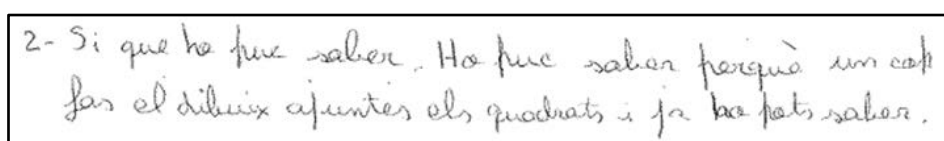 2- Si que ho puc saber. Ho puc saber perquè un cop
fas el dibuix ajuntes els quadrats i ja ho pots saber.